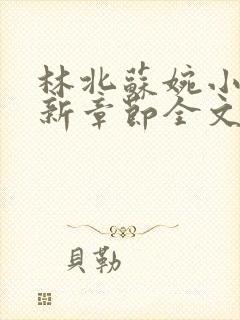 林北蘇婉小
新章節全文
貝勒